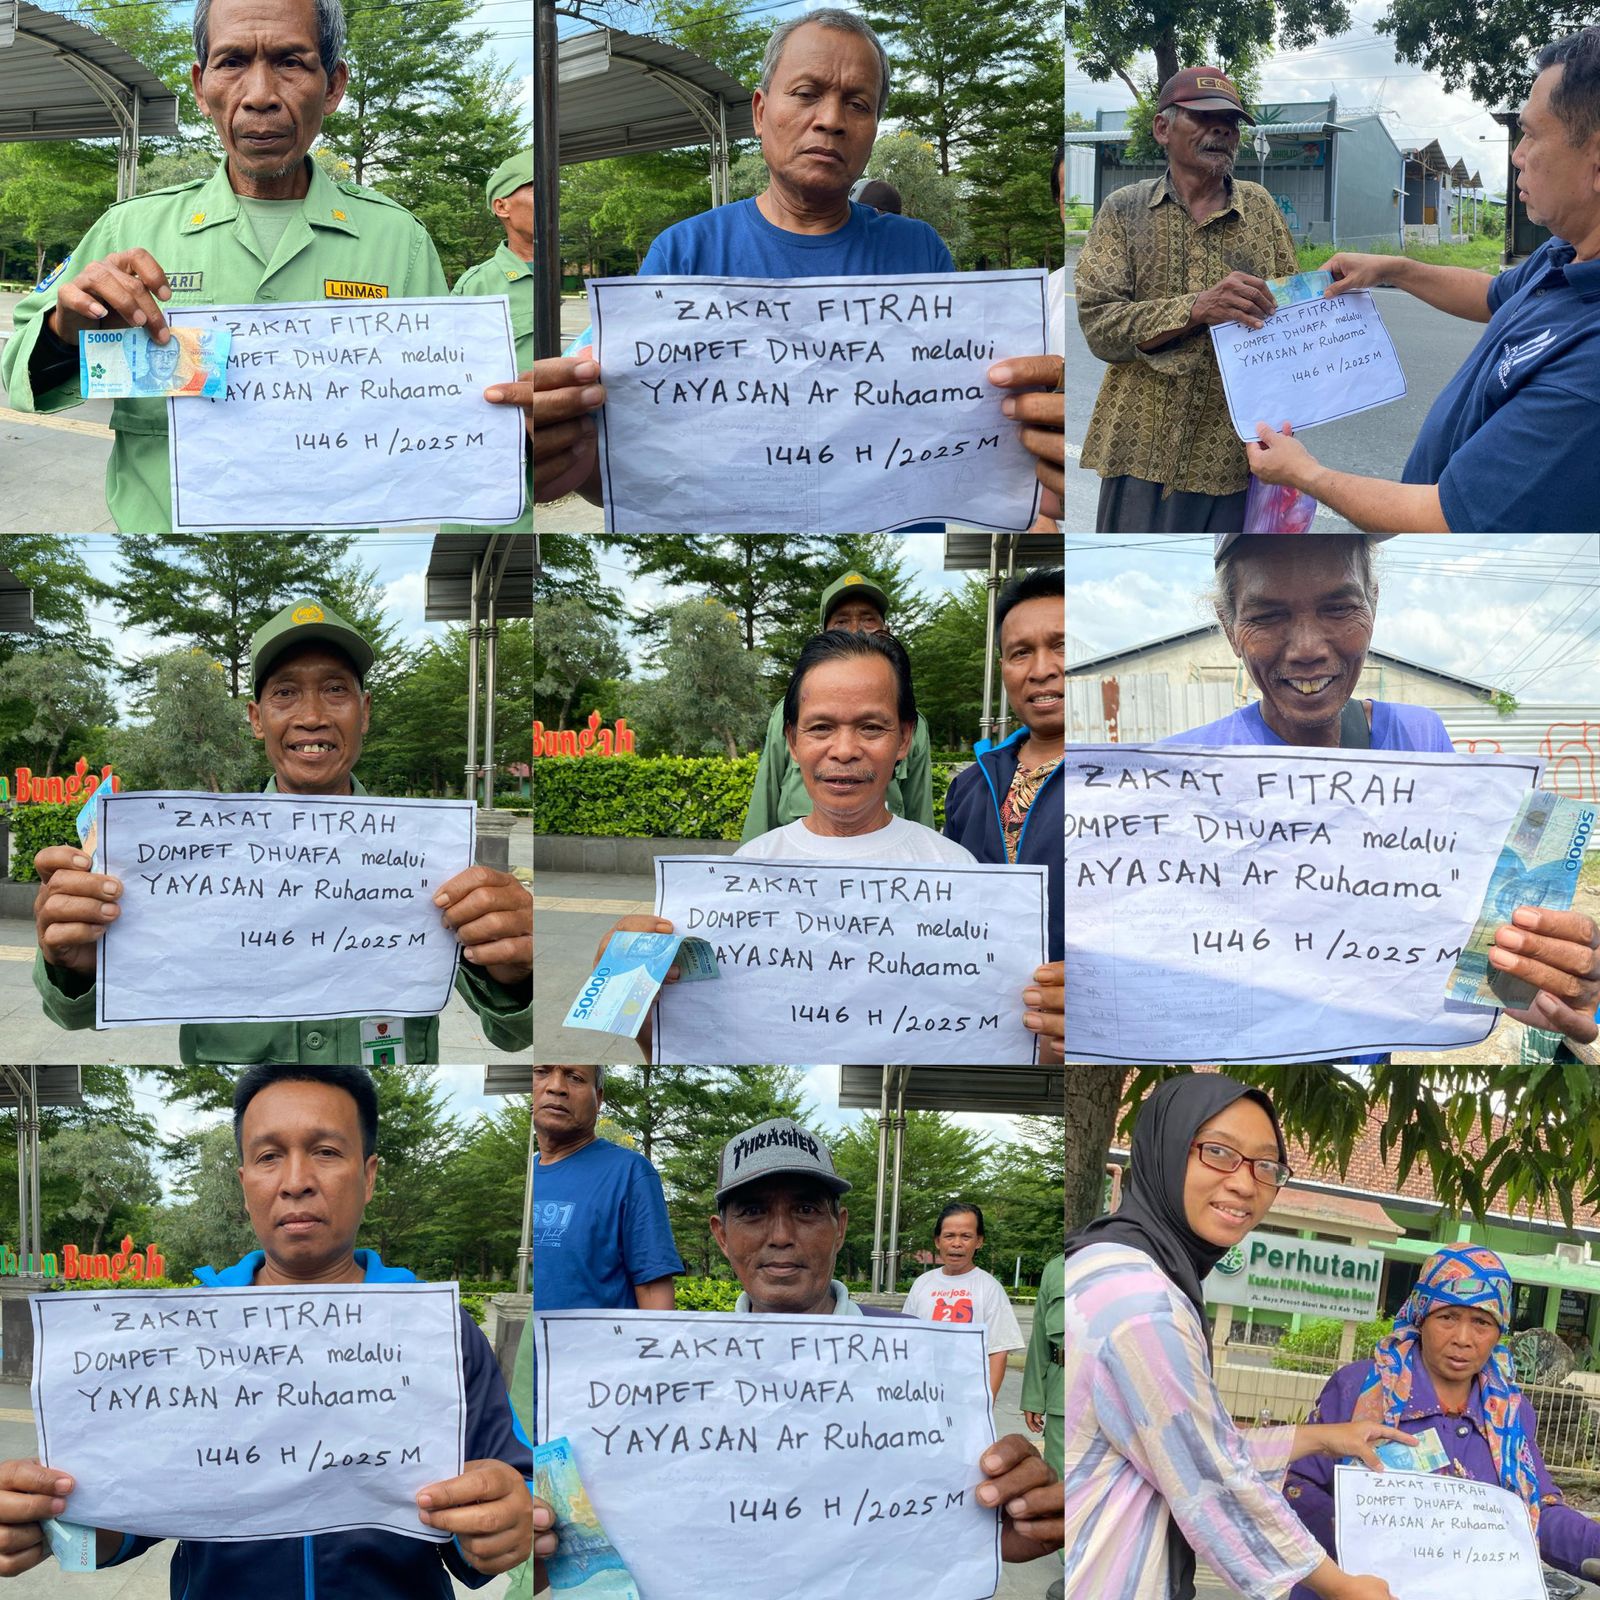 50000
TARI
LINMAS
"ZAKAT FITRAH
DOMPET DHUAFA melalui
YAYASAN Ar Ruhaama"
1446 H/2025 M
"ZAKAT FITRAH
DOMPET DHUAFA melalui
YAYASAN Ar Ruhaama"
1446 H/2025 M
ZAKAT FITRAH
DOMPET DHUAFA melalui
YAYASAN Ar Ruhaama"
1446 H/2025 M
Bungah
LINMAS
"ZAKAT FITRAH
DOMPET DHUAFA melalui
YAYASAN Ar Ruhaama"
1446 H/2025 M
Bungah
50000
"ZAKAT FITRAH
DOMPET DHUAFA melalui
YAYASAN Ar Ruhaama"
1446 H/2025 M
ZAKAT FITRAH
DOMPET DHUAFA melalui
YAYASAN Ar Ruhaama"
1446 H/2025 M
50000
Bungah
"ZAKAT FITRAH
DOMPET DHUAFA melalui
YAYASAN Ar Ruhaama"
1446 H/2025 M
THRASHER
"ZAKAT FITRAH
DOMPET DHUAFA melalui
YAYASAN Ar Ruhaama"
1446 H/2025 M
Perhutani
Kantor KPH Pekalongan Barat
"ZAKAT FITRAH
DOMPET DHUAFA melalui
YAYASAN Ar Ruhaama"
1446 H/2025 M